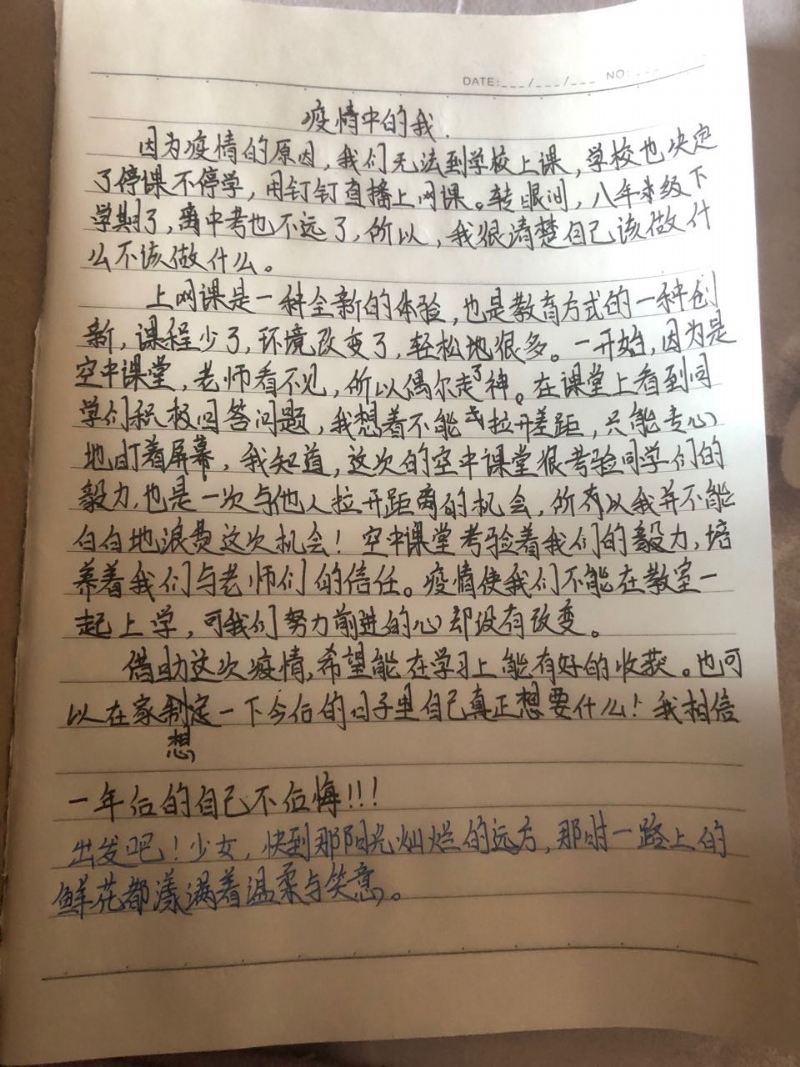 DATE:___/___/___ NO:
疫情中的我.
因为疫情的原因,我们无法到学校上课,学校也决定
了停课不停学,用钉钉直播上网课。转眼间,八年级下
学期了,离中考也不远了,所以,我很清楚自己该做什
么不该做什么。
上网课是一种全新的体验,也是教育方式的一种创
新,课程少了,环境改变了,轻松地很多。一开始,因为是
空中课堂,老师看不见,所以偶尔走了神。在课堂上看到同
学们积极回答问题,我想着不能拉开差距,只能专心
地盯着屏幕,我知道,这次的空中课堂很考验同学们的
毅力,也是一次与他人拉开距离的机会,所以我并不能
白白地浪费这次机会!空中课堂考验着我们的毅力,培
养着我们与老师们的信任。疫情使我们不能在教室一
起上学,可我们努力前进的心却没有改变。
借助这次疫情,希望能在学习上能有好的收获。也可
以在家想一下今后的日子里自己真正想要什么!我相信
一年后的自己不后悔!!!
出发吧!少女,快到那阳光灿烂的远方,那时一路上的
鲜花都漾满着温柔与笑意。